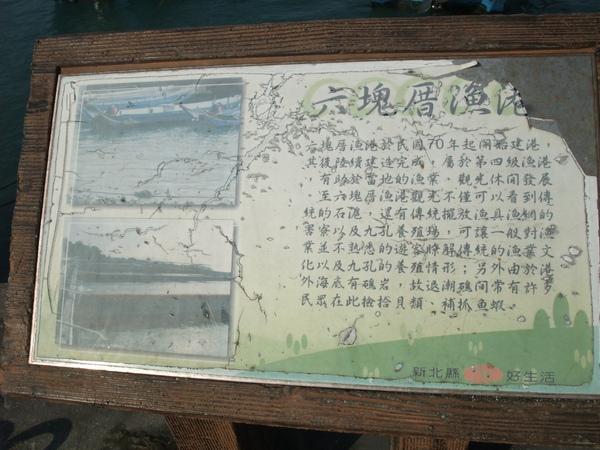 六塊厝漁港
六塊厝漁港於民國70年起開始建港，
其後陸續建造完成，屬於第四級漁港
，有助於當地的漁業、觀光休閒發展
至六塊厝漁港觀光不僅可以看到傳
統的石滬，還有傳統擺放漁具漁網的
寮以及九孔養殖場，可讓一般對漁
業並不熟悉的遊客瞭解傳統的漁業文
化以及九孔的養殖情形；另外由於港
外海底有礁岩，故退潮礁間常有許多
民眾在此撿拾貝類、補抓魚蝦。
新北縣 好生活